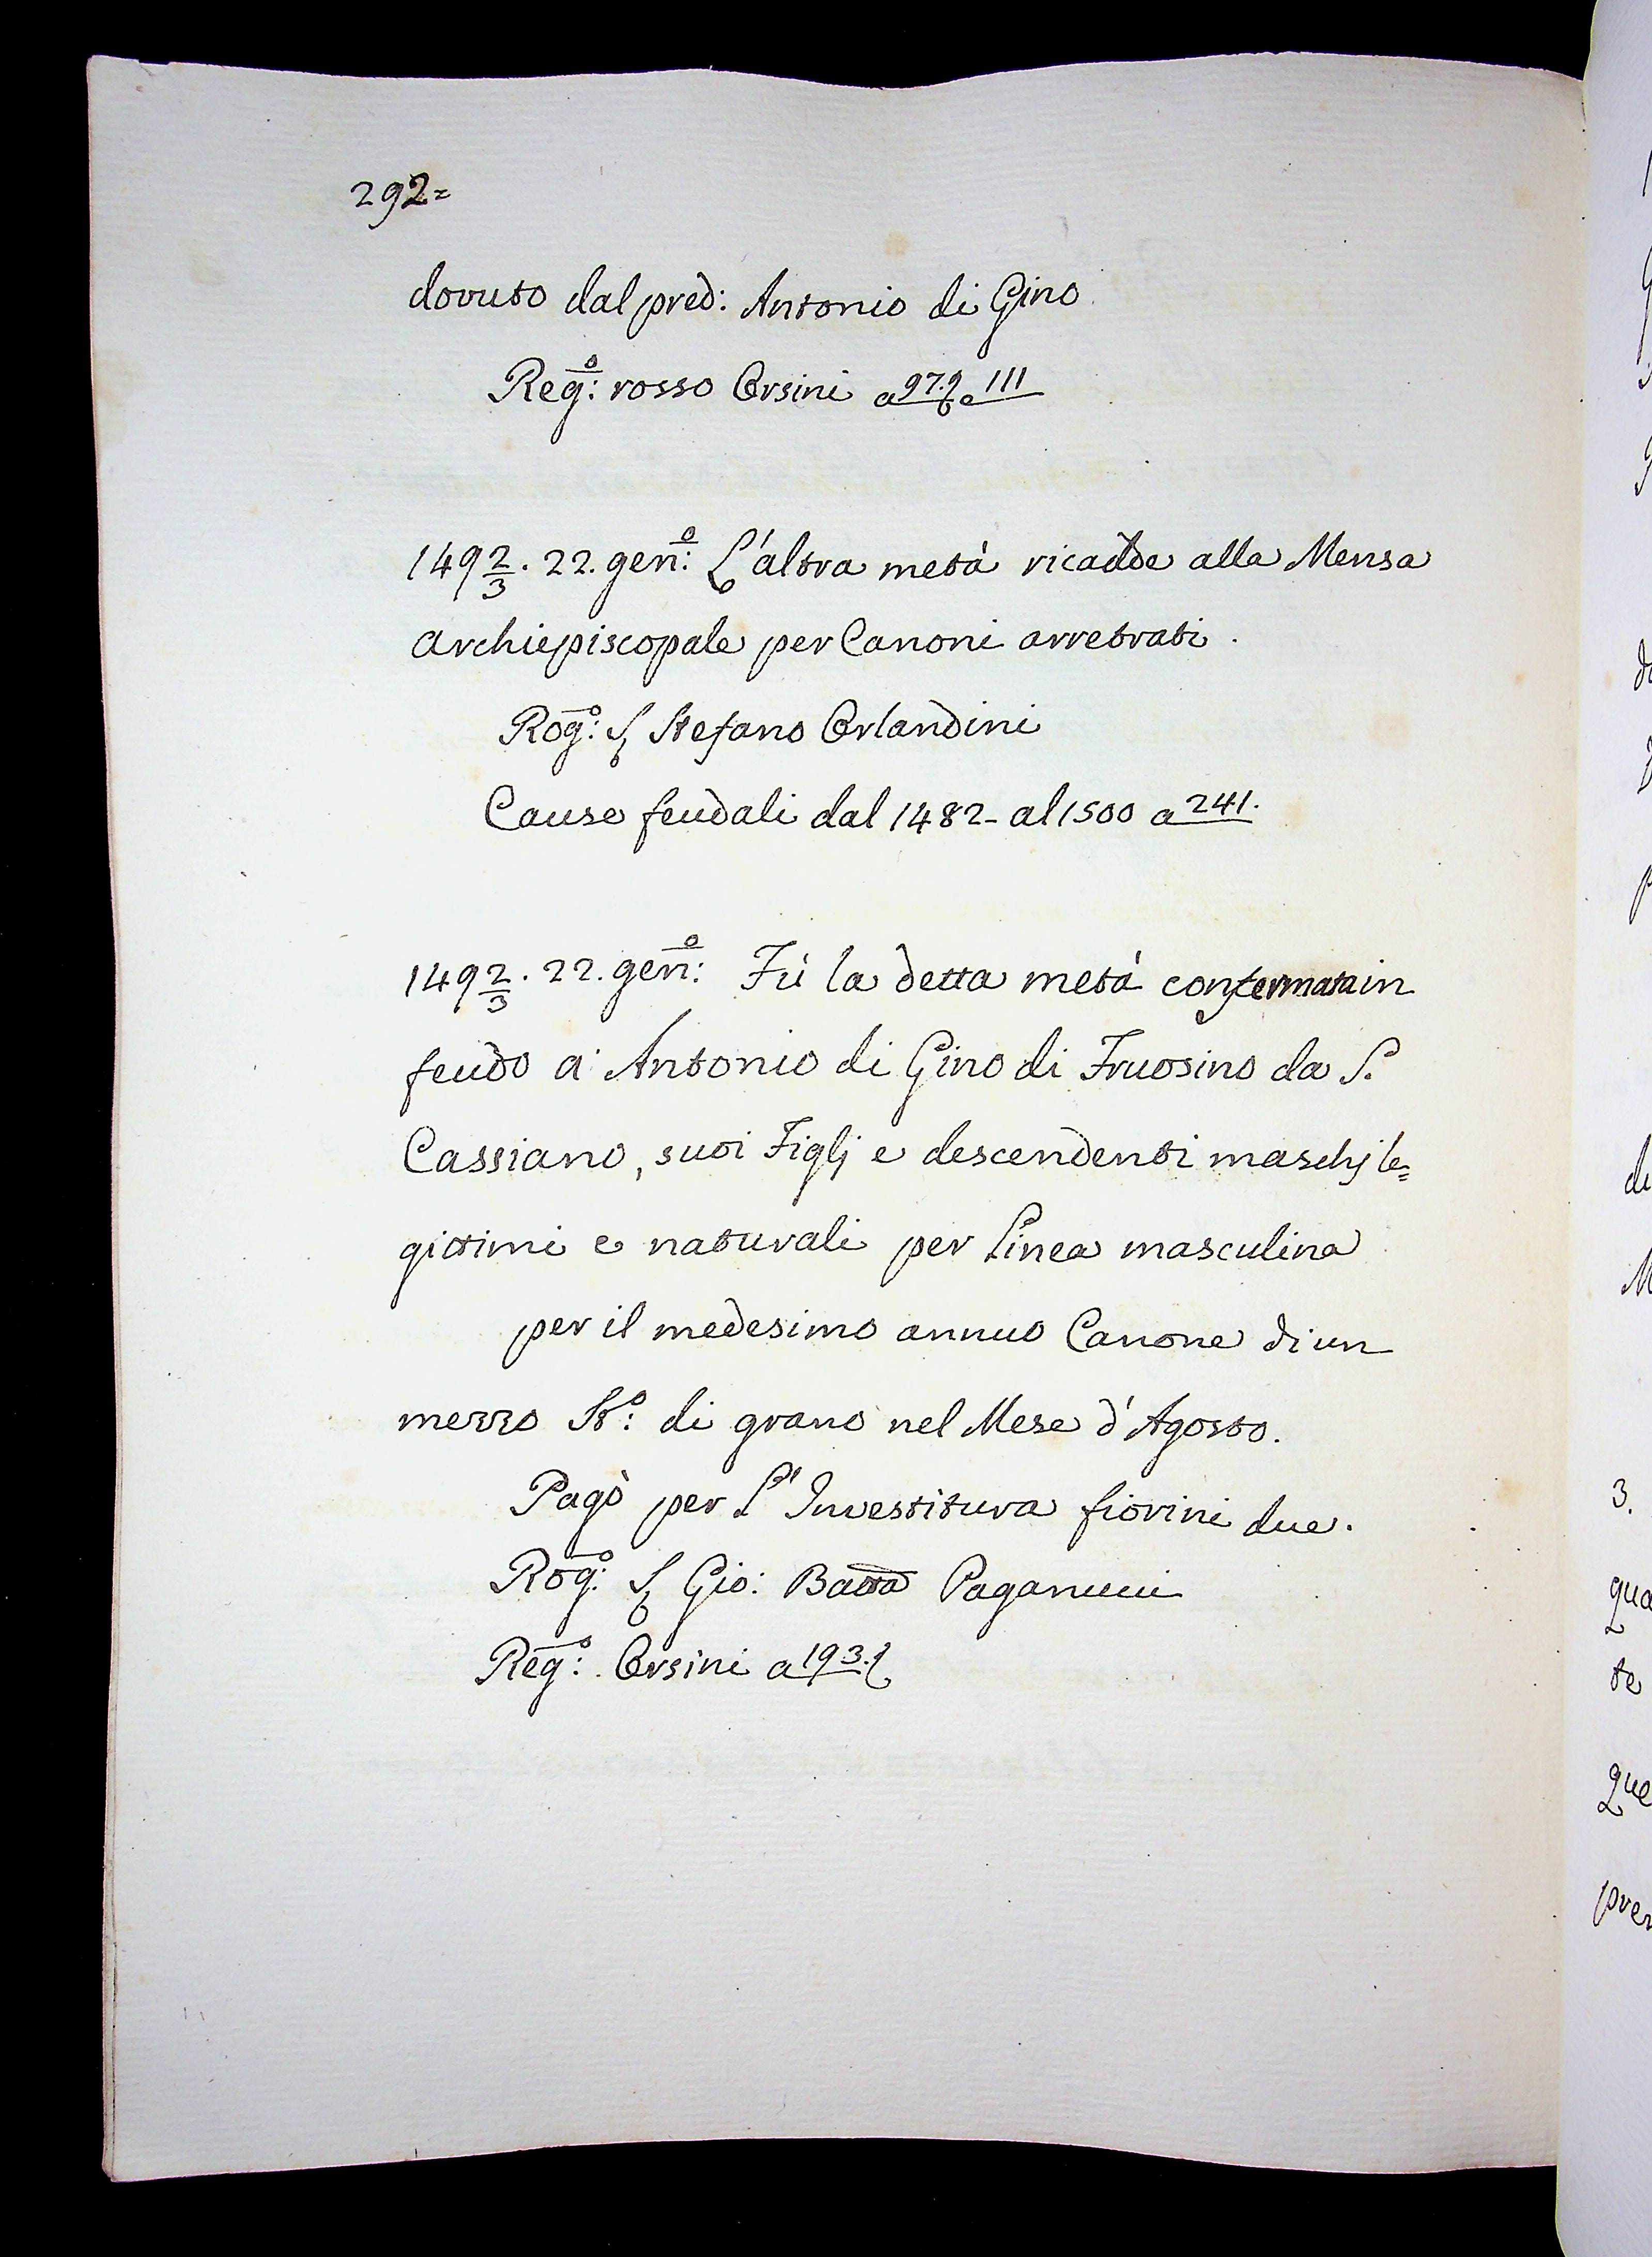 292=
dovuto dal pred: Antonio di Gino
Reg:º rosso Orsini a 97.t e 111
149 2/3. 22. gen:º L'altra metà ricadde alla Mensa
Archiepiscopale per Canoni arretrati.
Rog:º S. Stefano Orlandini
Cause feudali dal 1482- al 1500 a 241.
149 2/3. 22. gen:º Fù la detta metà confermata in
feudo a' Antonio di Gino di Fruosino da S.
Cassiano, suoi Figlj e descendenti maschj le=
gittimi e naturali per Linea masculina
per il medesimo annuo Canone di un
mezzo St:º di grano nel Mese d'Agosto.
Pagò per L'Investitura fiorini due.
Rog:º S. Gio: Batta Paganucci
Reg:º Orsini a 193.t